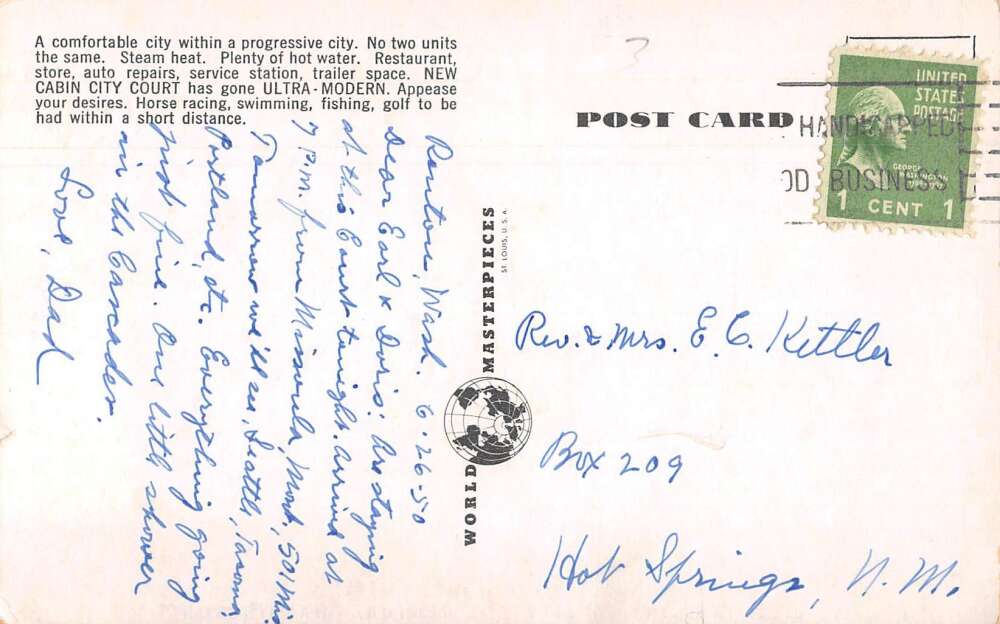 A comfortable city within a progressive city. No two units
the same. Steam heat. Plenty of hot water. Restaurant,
store, auto repairs, service station, trailer space. NEW
CABIN CITY COURT has gone ULTRA-MODERN. Appease
your desires. Horse racing, swimming, fishing, golf to be
had within a short distance.
Renton, Wash. 6-26-50
Dear Earl & Doris: Are staying
at this Court tonight. Arrived at
7 P.M. from Missoula, Mont, 501 Mi.
Tomorrow we'll see Seattle, Tacoma,
Portland, etc. Everything going
just fine. One little shower
in the Cascades.
Love, Dad
WORLD MASTERPIECES
ST. LOUIS, U.S.A.
POST CARD
3
HANDICAPPED
OD BUSINESS
UNITED
STATES
POSTAGE
GEORGE
WASHINGTON
1 CENT 1
Rev. & Mrs. E. C. Kettler
Box 209
Hot Springs, N. M.